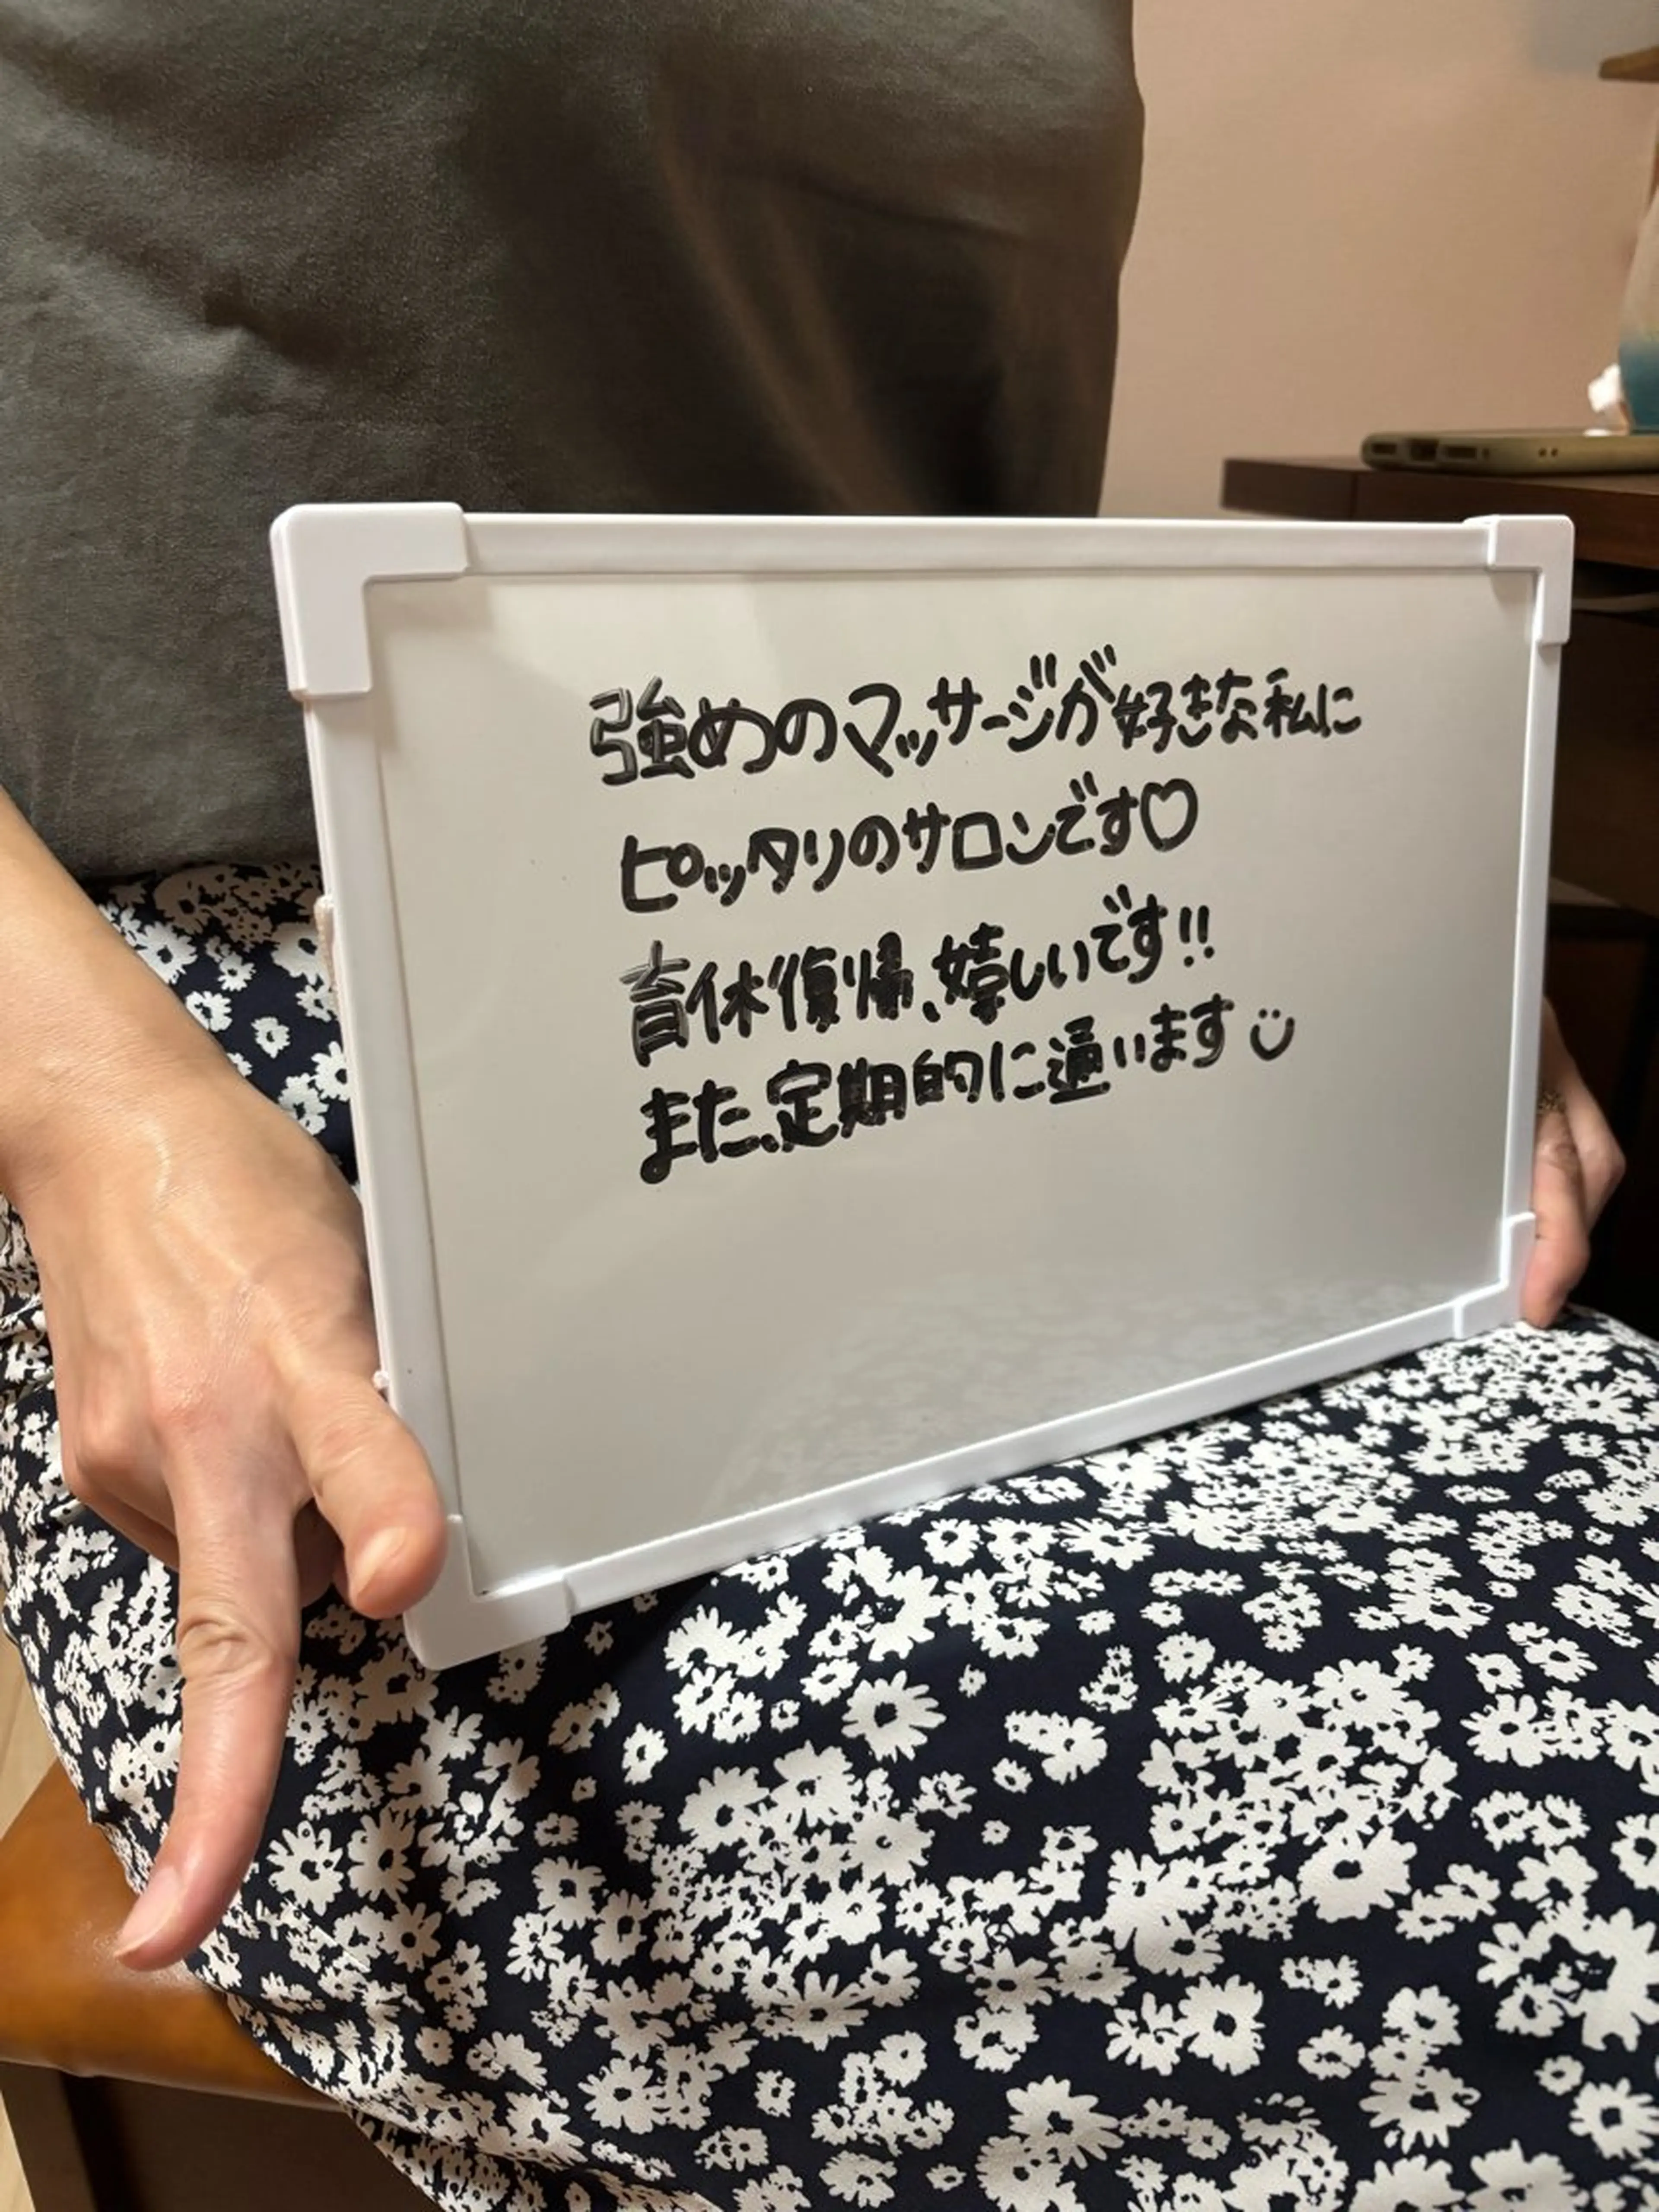 強めのマッサージが好きな私に
ピッタリのサロンです♡
育休復帰、嬉しいです!!
また、定期的に通います